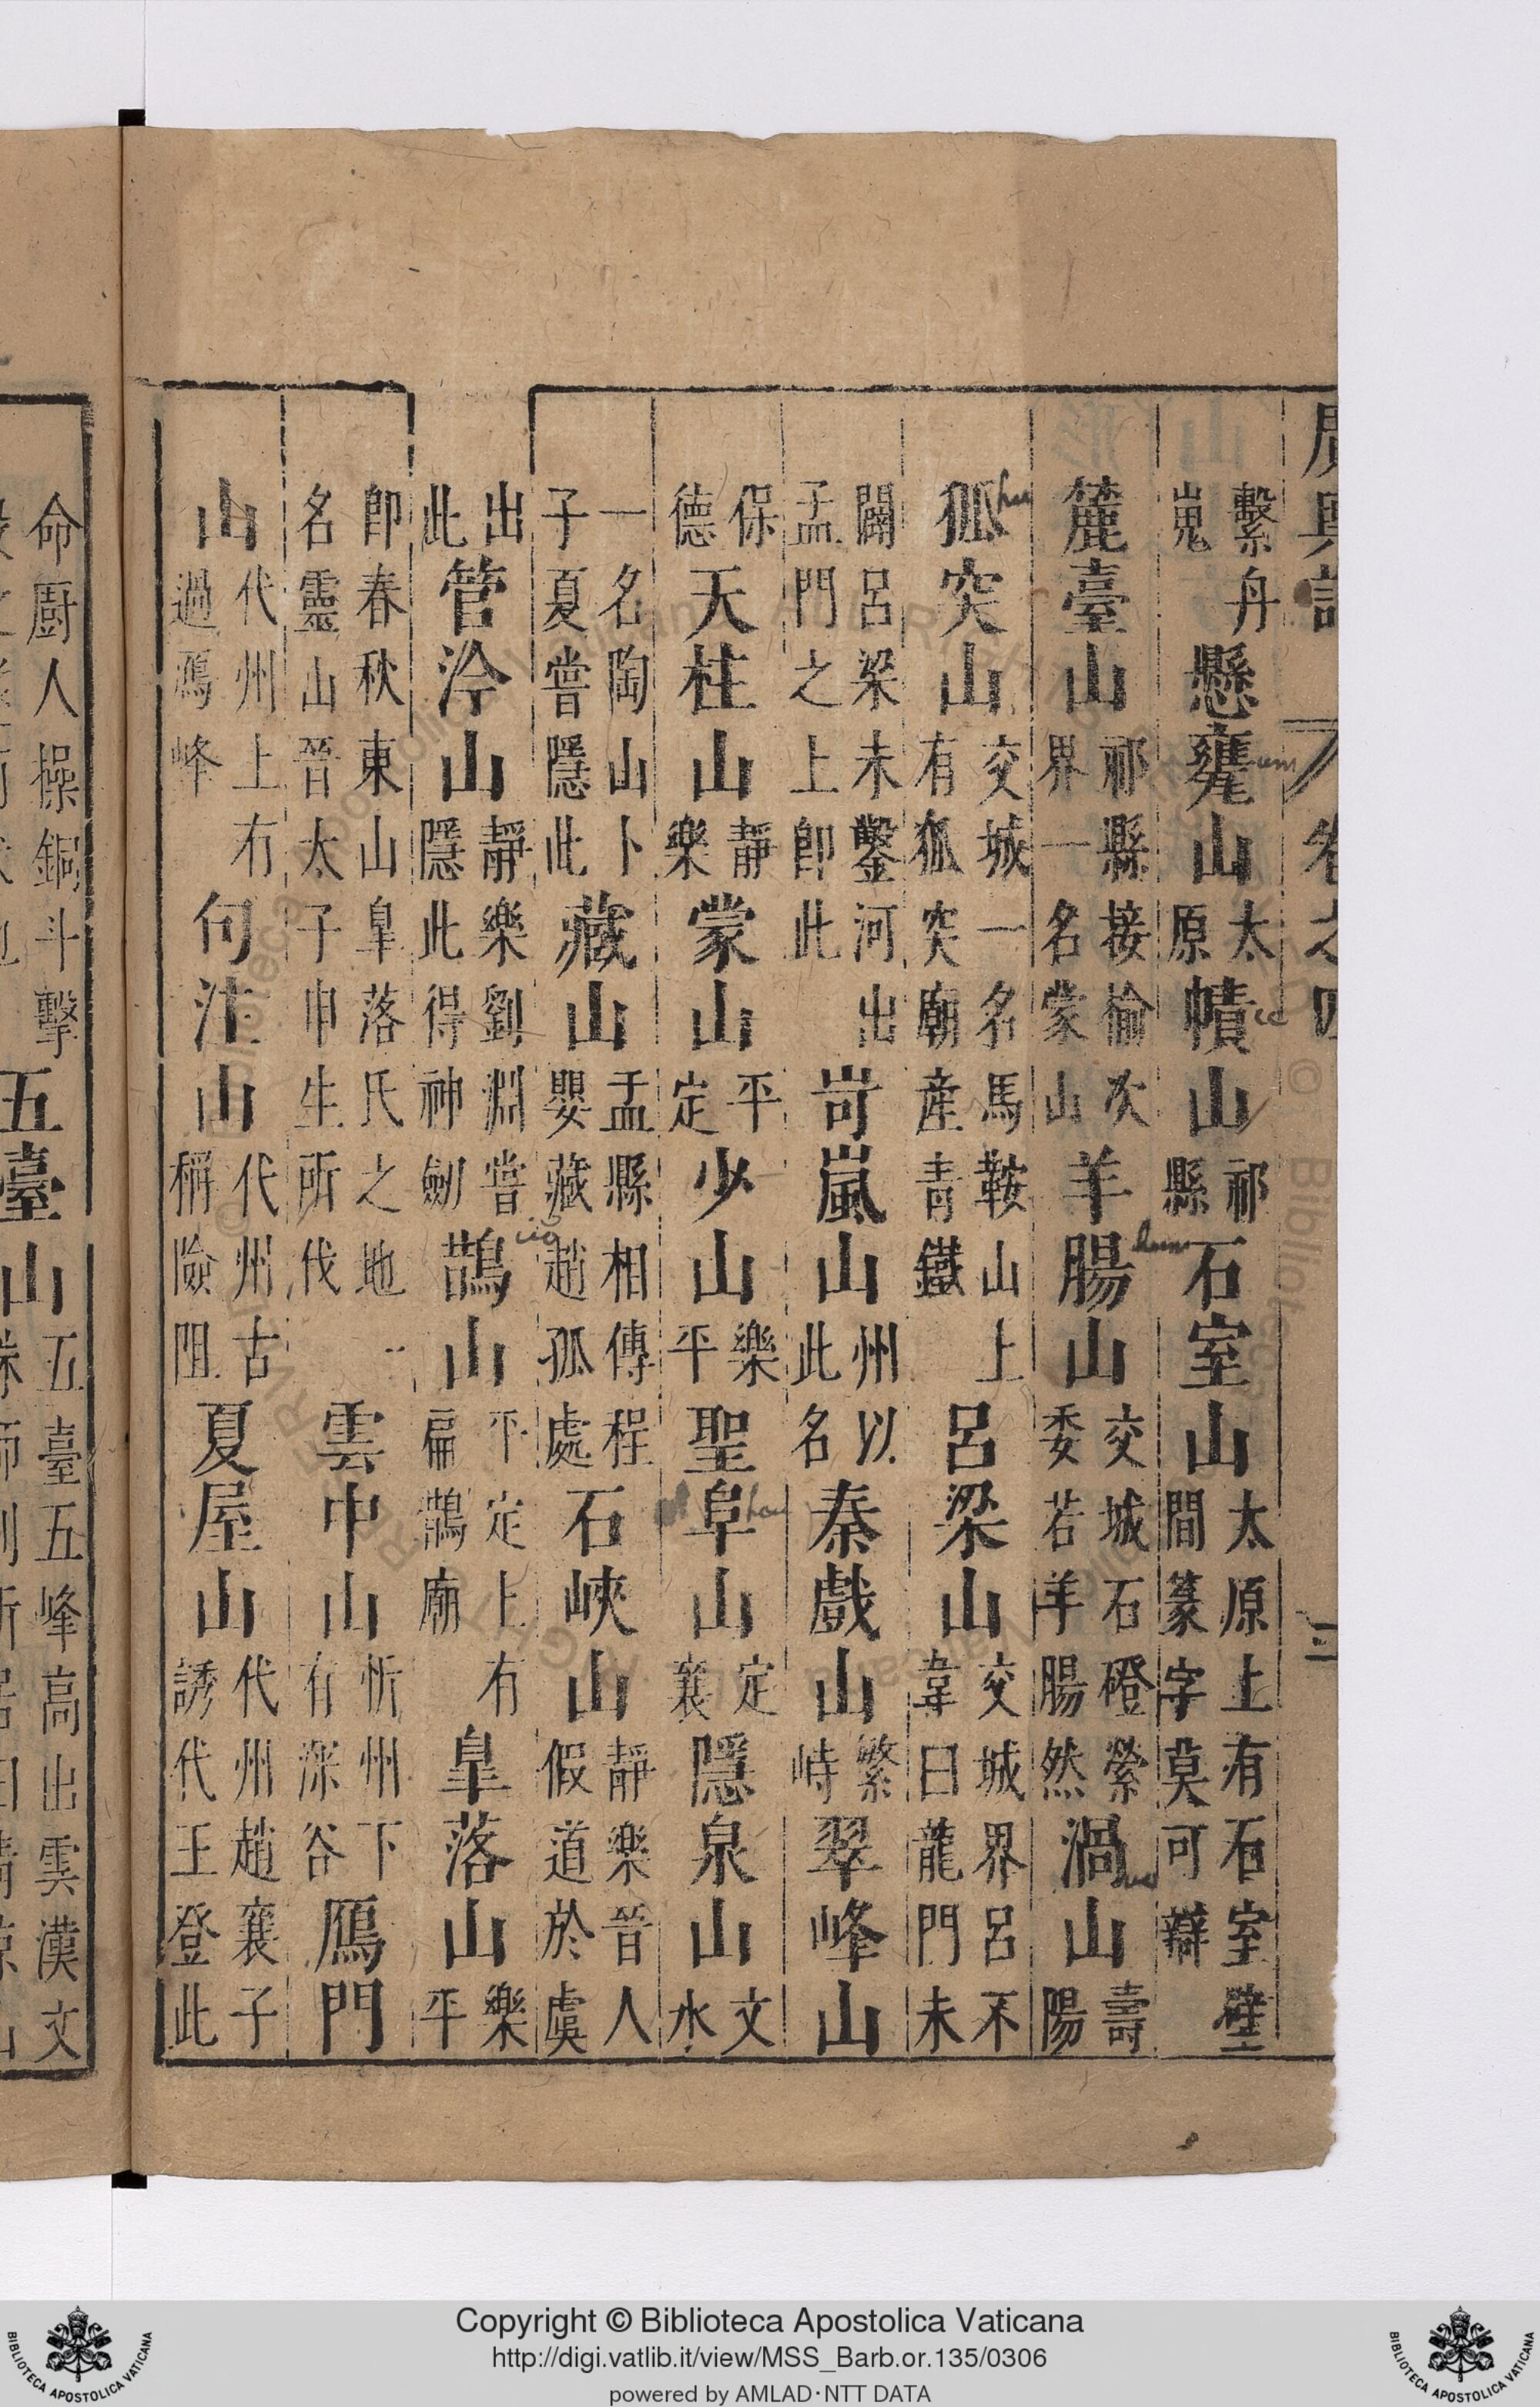 廣輿記 卷之四 三
繫舟嵬懸甕山太原幘山祁縣石室山太原上有石室壁間篆字莫可辯
麓臺山祁縣接榆次界一名蒙山羊腸山交城石磴縈委若羊腸然渦山壽陽
狐突山交城一名馬鞍山上有狐突廟産青鐵呂梁山交城界呂不韋曰龍門未
闢呂梁未鑿河出孟門之上即此岢嵐山州以此名秦戲山繁峙翠峰山
保德天柱山靜樂蒙山平定少山樂平聖阜山定襄隱泉山文水
一名陶山卜子夏嘗隱此藏山盂縣相傳程嬰藏趙孤處石峽山靜樂晉人假道於虞
出此管涔山靜樂劉淵嘗隱此得神劒鵲山平定上有扁鵲廟皐落山樂平
即春秋東山皐落氏之地一名靈山晉太子申生所伐雲中山忻州下有深谷鴈門
山代州上有過鴈峰句注山代州古稱險阻夏屋山代州趙襄子誘代王登此
命廚人操銅斗擊五臺山五臺五峰高出雲漢文
Copyright © Biblioteca Apostolica Vaticana
http://digi.vatlib.it/view/MSS_Barb.or.135/0306
powered by AMLAD·NTT DATA
BIBLIOTECA APOSTOLICA VATICANA
BIBLIOTECA APOSTOLICA VATICANA